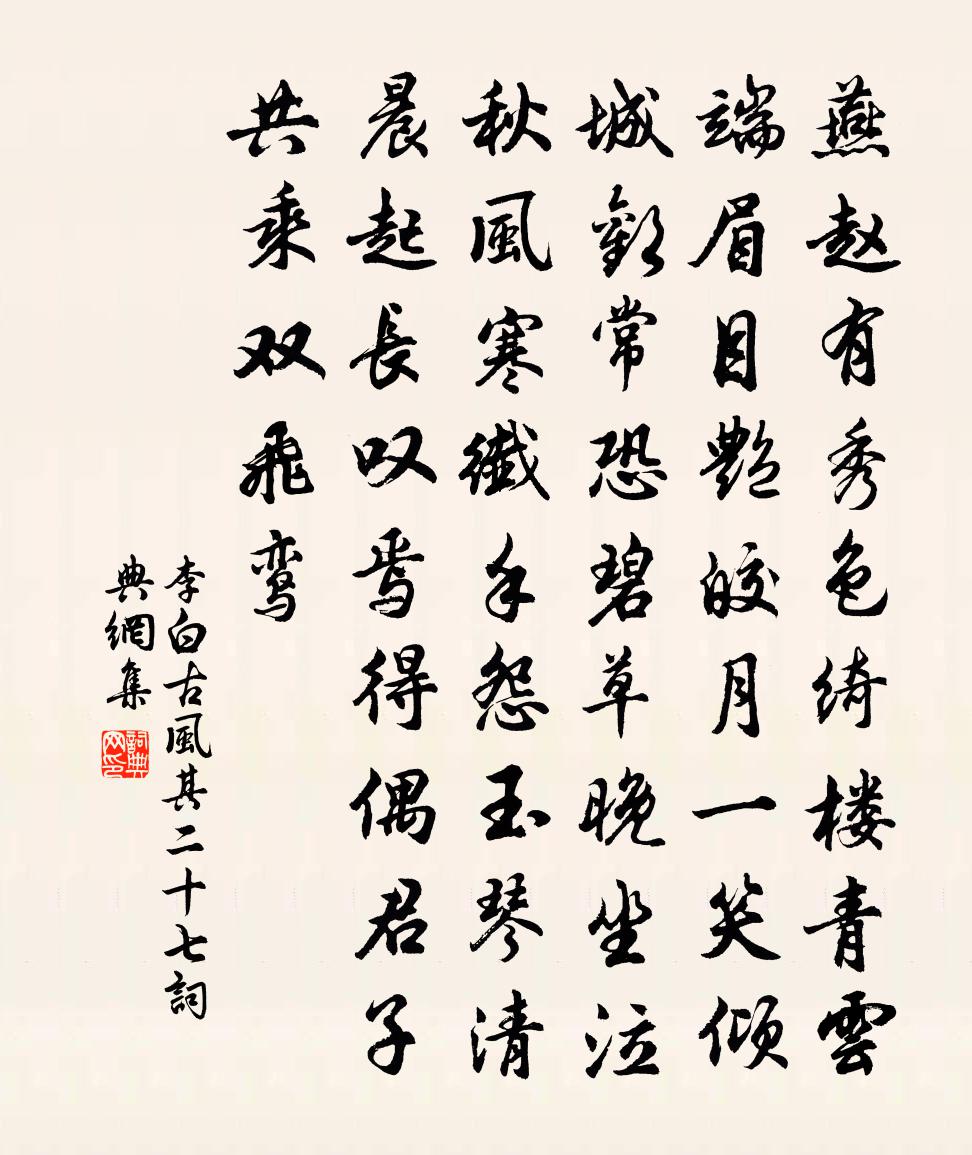 燕赵有秀色绮楼青雲
端眉目艷皎月一笑倾
城歡常恐碧草晚坐泣
秋風寒纖手怨玉琴清
晨起長叹焉得偶君子
共乘双飛鸾
李白古風其二十七詞
典網集
詞典网印